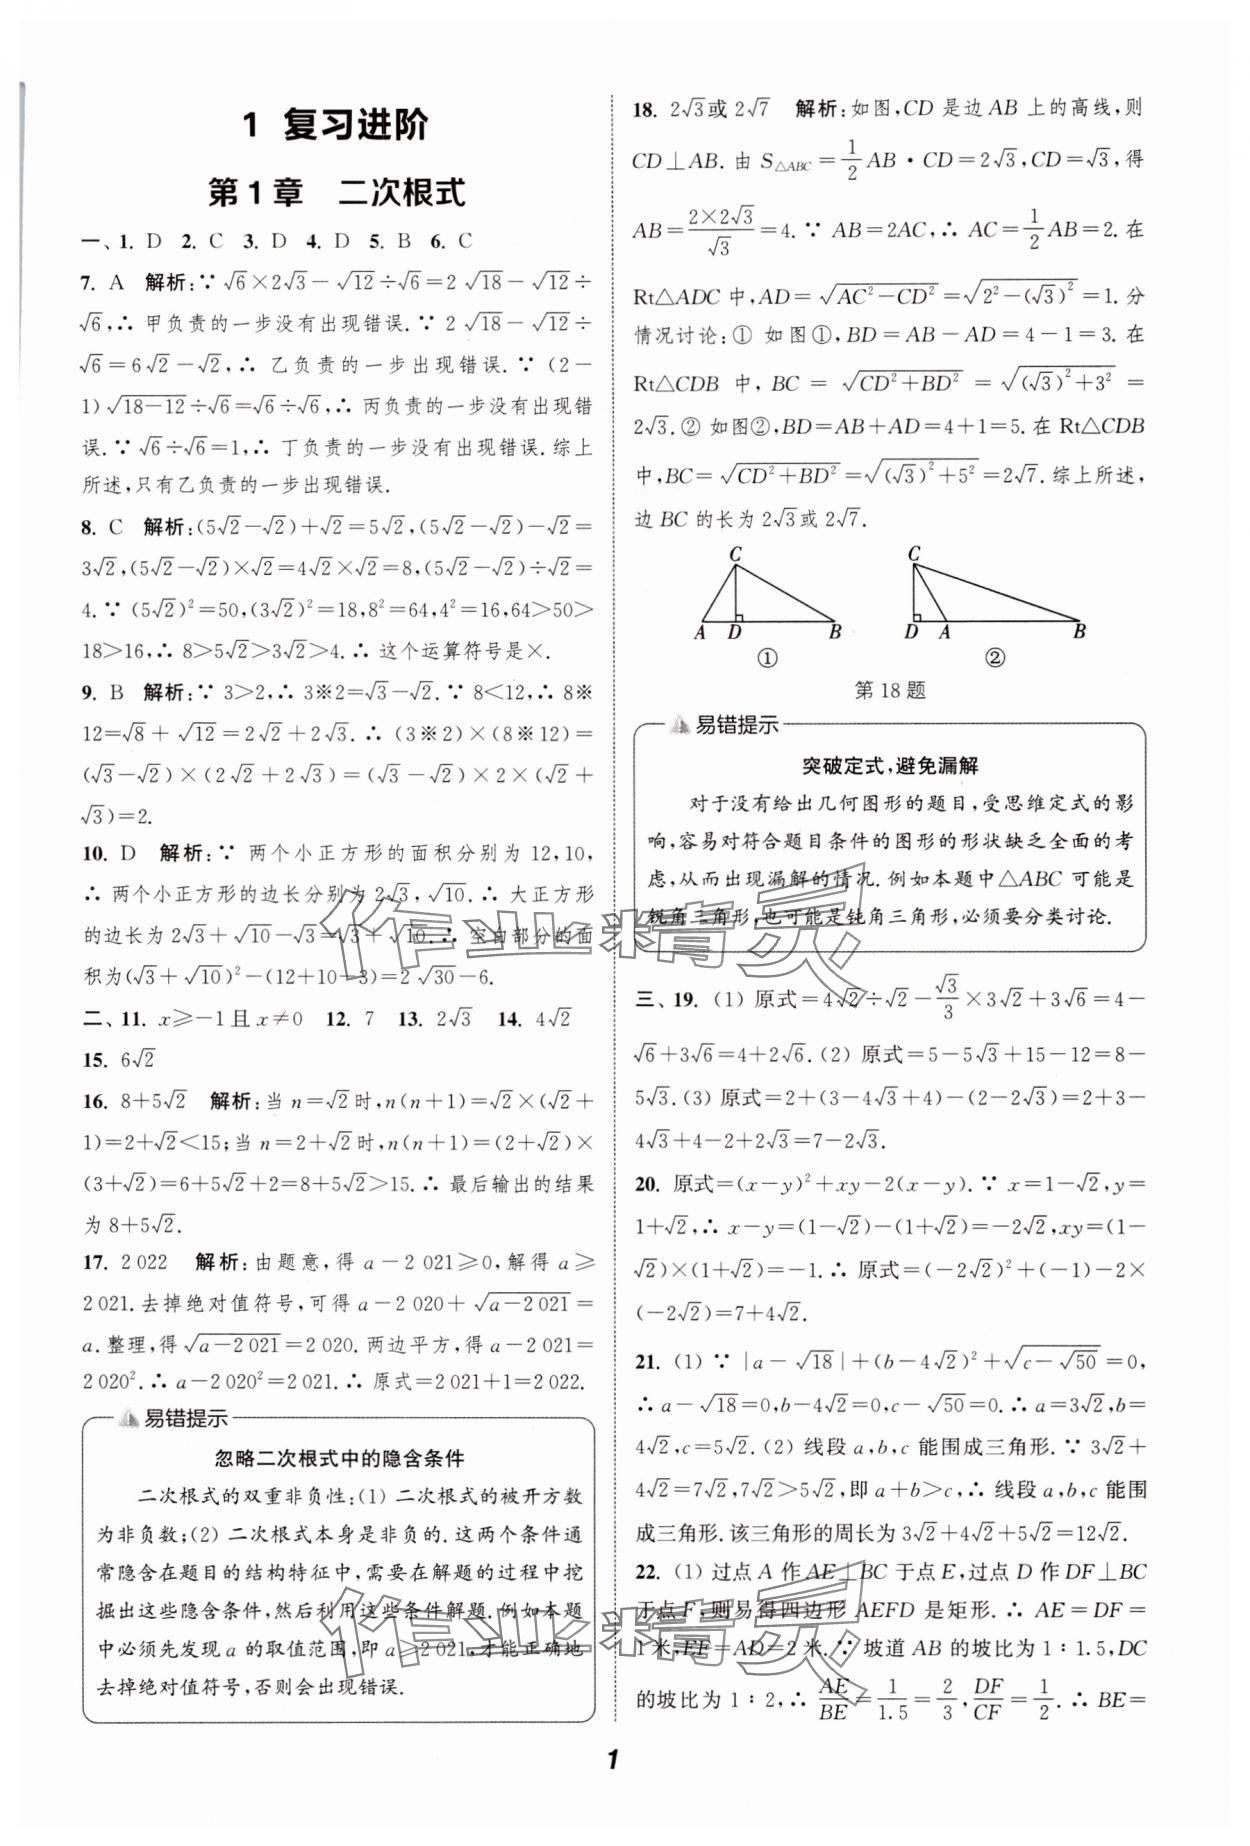 1 复习进阶
第1章 二次根式
一、1. D 2. C 3. D 4. D 5. B 6. C
7. A 解析:∵ √6×2√3-√12÷√6=2√18-√12÷
√6,∴ 甲负责的一步没有出现错误.∵ 2√18-√12÷
√6=6√2-√2,∴ 乙负责的一步出现错误.∵ (2-
1)√(18-12)÷√6=√6÷√6,∴ 丙负责的一步没有出现错
误.∵ √6÷√6=1,∴ 丁负责的一步没有出现错误.综上
所述,只有乙负责的一步出现错误.
8. C 解析:(5√2-√2)+√2=5√2,(5√2-√2)-√2=
3√2,(5√2-√2)×√2=4√2×√2=8,(5√2-√2)÷√2=
4.∵ (5√2)²=50,(3√2)²=18,8²=64,4²=16,64>50>
18>16,∴ 8>5√2>3√2>4.∴ 这个运算符号是×.
9. B 解析:∵ 3>2,∴ 3※2=√3-√2.∵ 8<12,∴ 8※
12=√8+√12=2√2+2√3.∴ (3※2)×(8※12)=
(√3-√2)×(2√2+2√3)=(√3-√2)×2×(√2+
√3)=2.
10. D 解析:∵ 两个小正方形的面积分别为12,10,
∴ 两个小正方形的边长分别为2√3,√10.∴ 大正方形
的边长为2√3+√10-√3=√3+√10.∴ 空白部分的面
积为(√3+√10)²-(12+10-3)=2√30-6.
二、11. x≥-1且x≠0 12. 7 13. 2√3 14. 4√2
15. 6√2
16. 8+5√2 解析:当n=√2时,n(n+1)=√2×(√2+
1)=2+√2<15;当n=2+√2时,n(n+1)=(2+√2)×
(3+√2)=6+5√2+2=8+5√2>15.∴ 最后输出的结果
为8+5√2.
17. 2 022 解析:由题意,得a-2 021≥0,解得a≥
2 021.去掉绝对值符号,可得a-2 020+√(a-2 021)=
a.整理,得√(a-2 021)=2 020.两边平方,得a-2 021=
2 020².∴ a-2 020²=2 021.∴ 原式=2 021+1=2 022.
易错提示
忽略二次根式中的隐含条件
二次根式的双重非负性:(1) 二次根式的被开方数
为非负数;(2) 二次根式本身是非负的.这两个条件通
常隐含在题目的结构特征中,需要在解题的过程中挖
掘出这些隐含条件,然后利用这些条件解题.例如本题
中必须先发现a的取值范围,即a≥2 021,才能正确地
去掉绝对值符号,否则会出现错误.
18. 2√3或2√7 解析:如图,CD是边AB上的高线,则
CD⊥AB.由S△ABC=1/2 AB·CD=2√3,CD=√3,得
AB=(2×2√3)/√3=4.∵ AB=2AC,∴ AC=1/2 AB=2.在
Rt△ADC中,AD=√(AC²-CD²)=√(2²-(√3)²)=1.分
情况讨论:① 如图①,BD=AB-AD=4-1=3.在
Rt△CDB中,BC=√(CD²+BD²)=√((√3)²+3²)=
2√3.② 如图②,BD=AB+AD=4+1=5.在Rt△CDB
中,BC=√(CD²+BD²)=√((√3)²+5²)=2√7.综上所述,
边BC的长为2√3或2√7.
C C
A D B D A B
① ②
第18题
易错提示
突破定式,避免漏解
对于没有给出几何图形的题目,受思维定式的影
响,容易对符合题目条件的图形的形状缺乏全面的考
虑,从而出现漏解的情况.例如本题中△ABC可能是
锐角三角形,也可能是钝角三角形,必须要分类讨论.
三、19. (1) 原式=4√2÷√2-√3/3×3√2+3√6=4-
√6+3√6=4+2√6.(2) 原式=5-5√3+15-12=8-
5√3.(3) 原式=2+(3-4√3+4)-(2-2√3)=2+3-
4√3+4-2+2√3=7-2√3.
20. 原式=(x-y)²+xy-2(x-y).∵ x=1-√2,y=
1+√2,∴ x-y=(1-√2)-(1+√2)=-2√2,xy=(1-
√2)×(1+√2)=-1.∴ 原式=(-2√2)²+(-1)-2×
(-2√2)=7+4√2.
21. (1) ∵ |a-√18|+(b-4√2)²+√(c-√50)=0,
∴ a-√18=0,b-4√2=0,c-√50=0.∴ a=3√2,b=
4√2,c=5√2.(2) 线段a,b,c能围成三角形.∵ 3√2+
4√2=7√2,7√2>5√2,即a+b>c,∴ 线段a,b,c能围
成三角形.该三角形的周长为3√2+4√2+5√2=12√2.
22. (1) 过点A作AE⊥BC于点E,过点D作DF⊥BC
于点F,则易得四边形AEFD是矩形.∴ AE=DF=
1米,EF=AD=2米.∵ 坡道AB的坡比为1∶1.5,DC
的坡比为1∶2,∴ AE/BE=1/1.5=2/3,DF/CF=1/2.∴ BE=
1
作业精灵
作业精灵